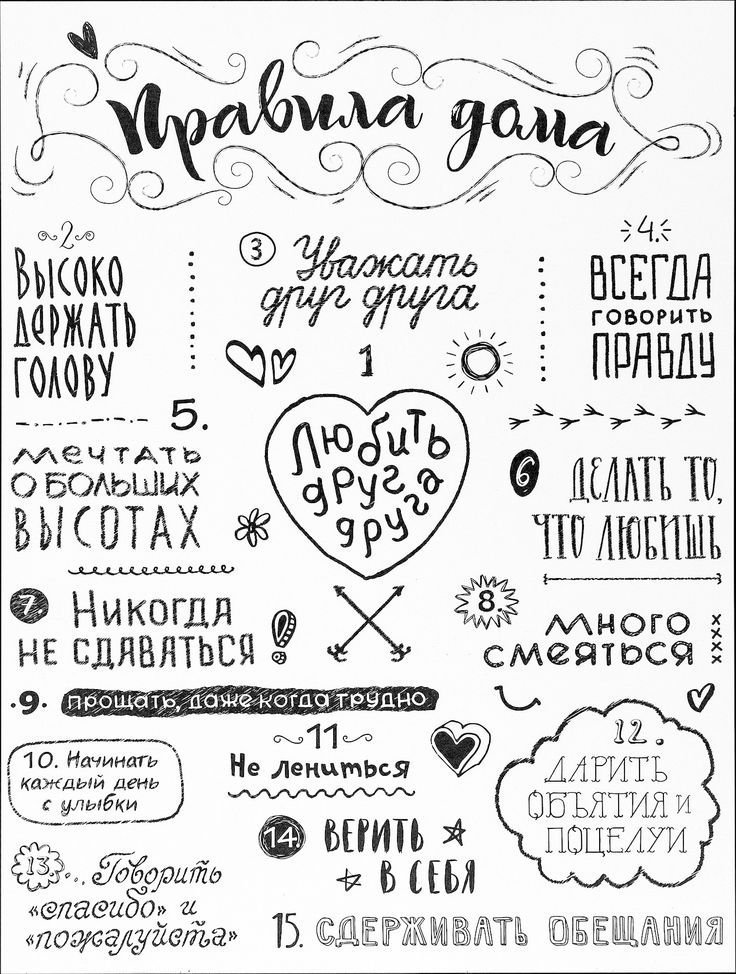 Правила дома
1
Любить
друг
друга
2
Высоко
держать
голову
3
Уважать
друг друга
4.
Всегда
говорить
правду
5.
Мечтать
о больших
высотах
6
Делать то,
что любишь
7
Никогда
не сдаваться
8.
Много
смеяться
.9.
прощать, даже когда трудно
10. Начинать
каждый день
с улыбки
11
Не лениться
12.
Дарить
объятия и
поцелуи
13...
Говорить
«спасибо» и
«пожалуйста»
14.
Верить
в себя
15. Сдерживать обещания